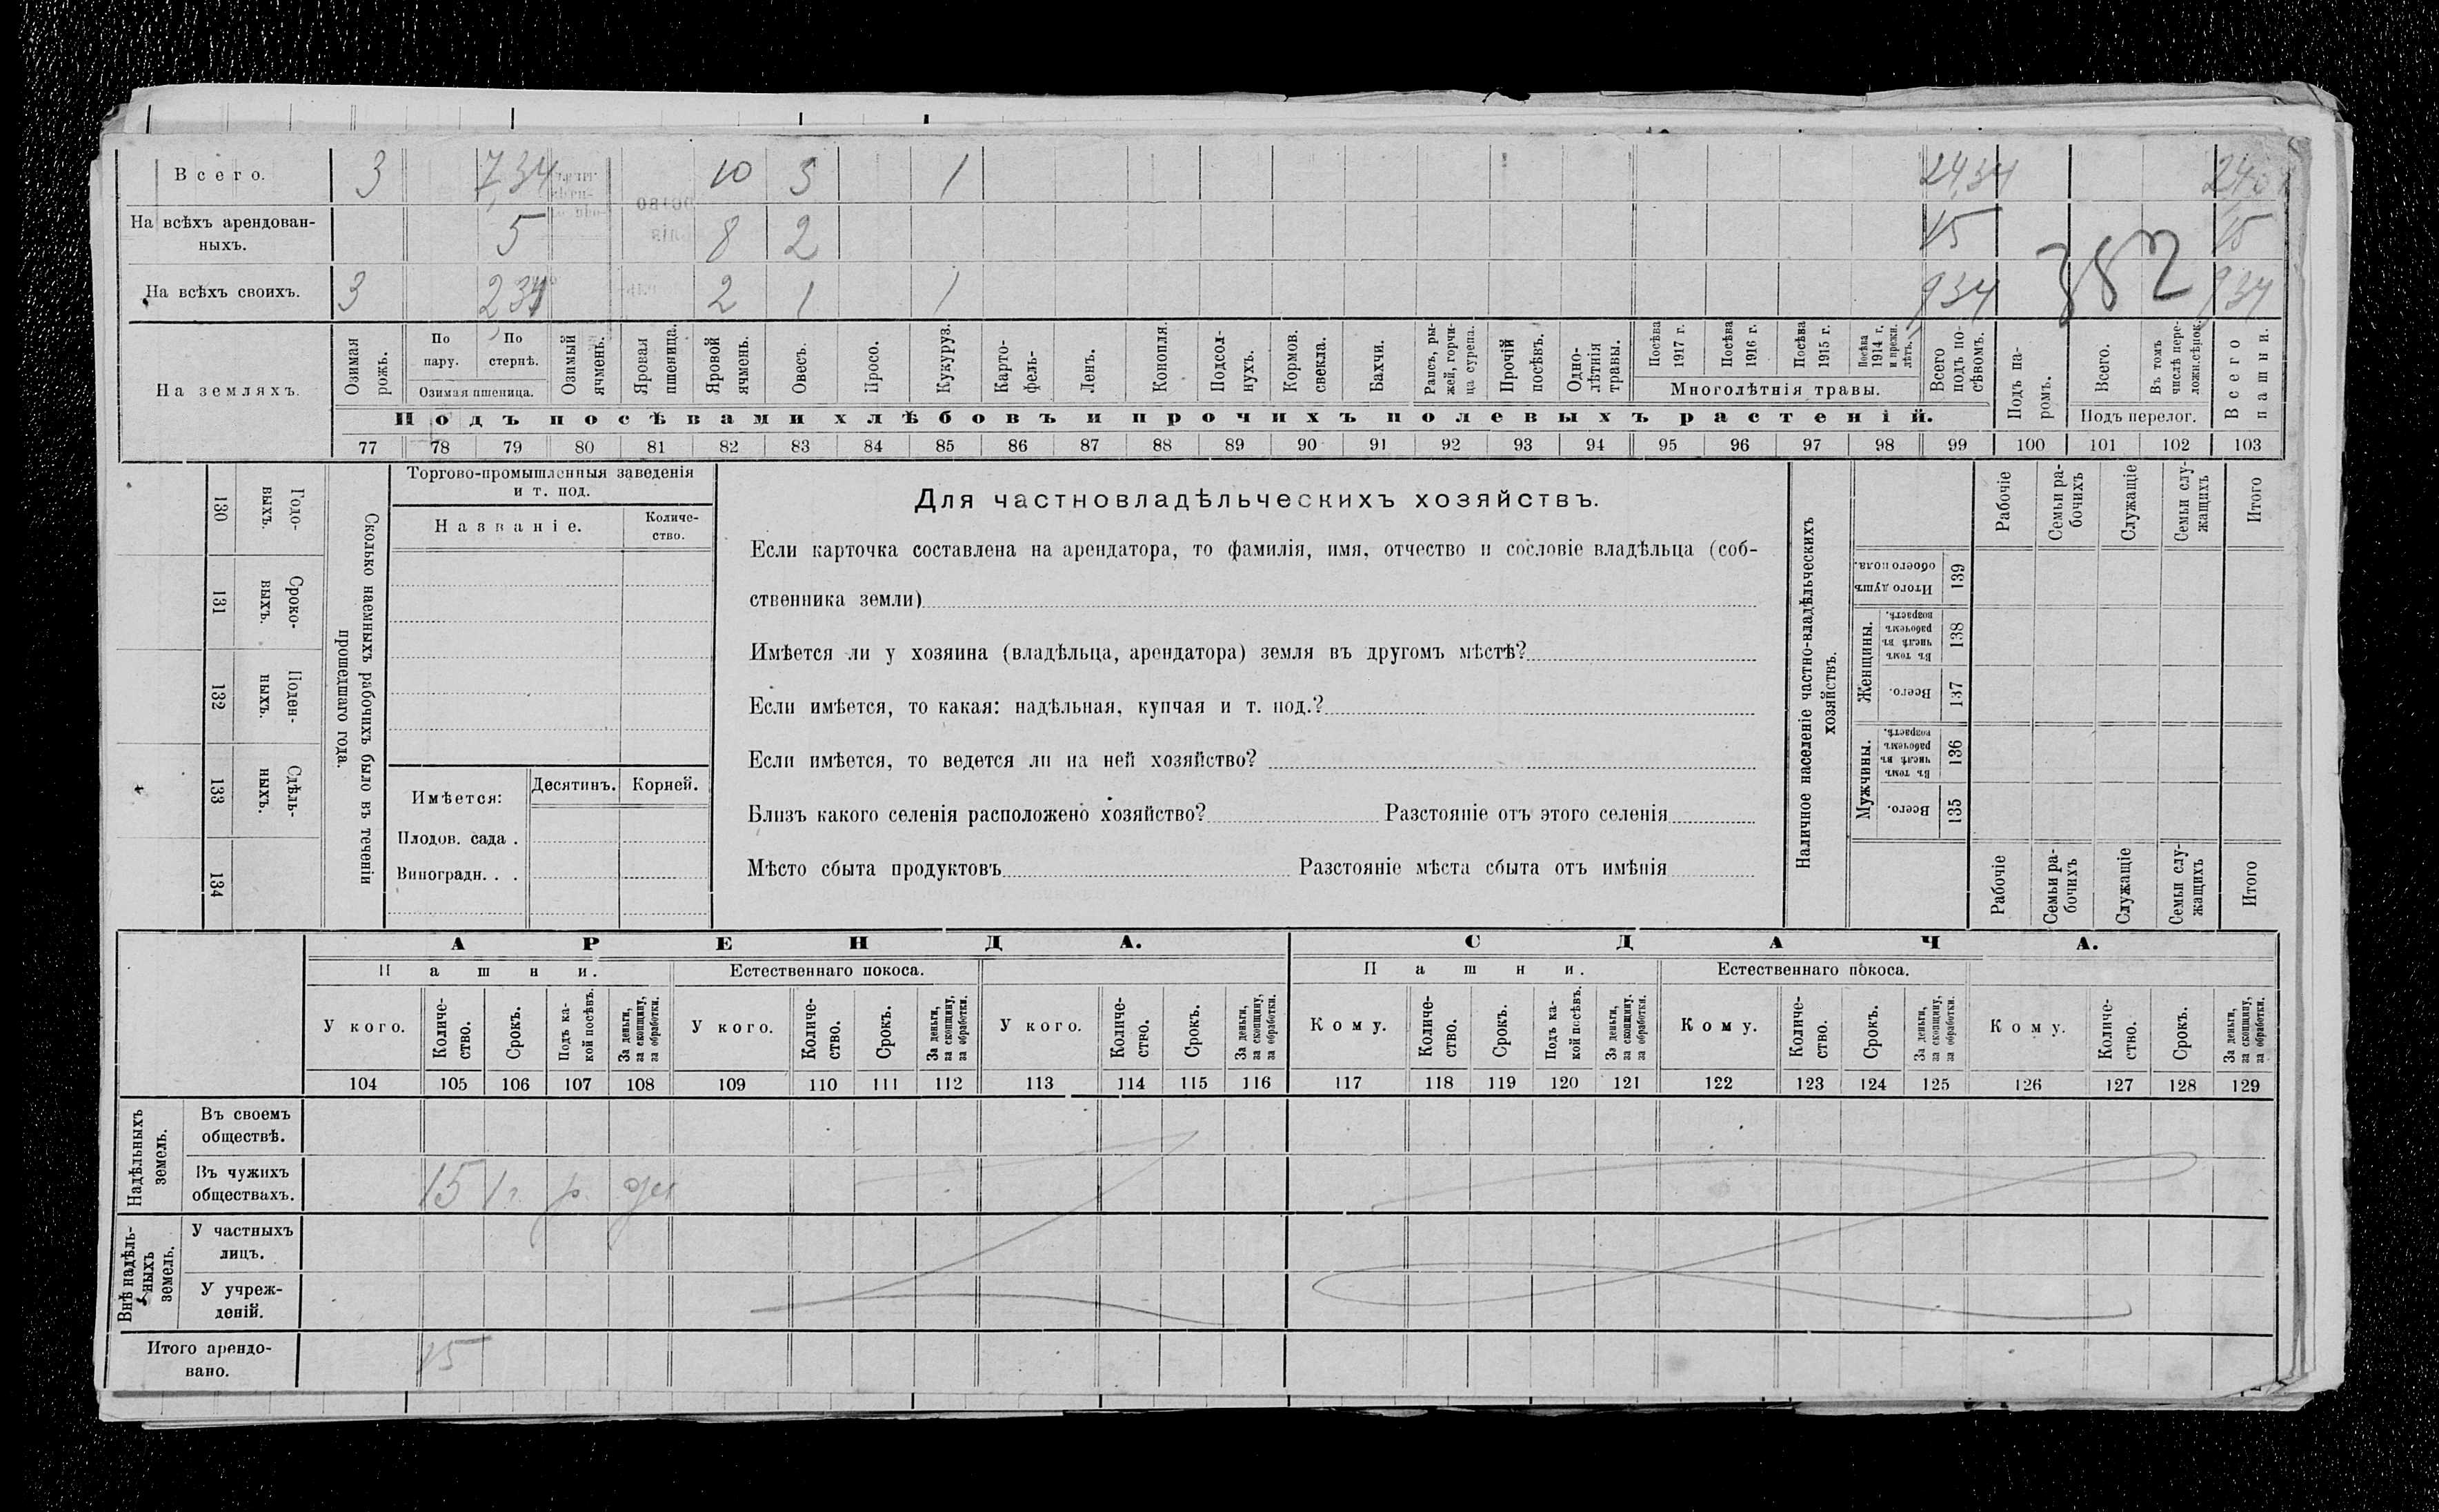 Всего. 3 7,34 10 3 1 24,34
На всѣхъ арендован-
ныхъ. 5 8 2 15 15
На всѣхъ своихъ. 3 2 34 2 1 1 9 34 9 34
382
На земляхъ.
Озимая рожь.
По пару.
По стернѣ.
Озимая пшеница.
Озимый ячмень.
Яровая пшеница.
Яровой ячмень.
Овесъ.
Просо.
Кукуруз.
Карто-
фель-
Ленъ.
Конопля.
Подсол-
нухъ.
Кормов. свекла.
Бахчи.
Рапсъ, ры-
жей, горчи-
ца сурепа.
Прочій посѣвъ.
Одно-
лѣтнія травы.
Посѣва 1917 г.
Посѣва 1916 г.
Посѣва 1915 г.
Посѣва 1914 г. и прежн. лѣтъ.
Многолѣтнія травы.
Всего подъ по-
сѣвомъ.
Подъ па-
ромъ.
Всего.
Въ томъ числѣ пере-
ложн.сѣнок.
Подъ перелог.
Всего пашни.
Подъ посѣвами хлѣбовъ и прочихъ полевыхъ растеній.
77 78 79 80 81 82 83 84 85 86 87 88 89 90 91 92 93 94 95 96 97 98 99 100 101 102 103
Годо-
выхъ.
130
Сроко-
выхъ.
131
Поден-
ныхъ.
132
Сдѣль-
ныхъ.
133
134
Сколько наемныхъ рабочихъ было въ теченіи
прошедшаго года.
Торгово-промышленныя заведенія
и т. под.
Названіе.
Количе-
ство.
Имѣется:
Десятинъ.
Корней.
Плодов. сада .
Виноградн. . .
Для частновладѣльческихъ хозяйствъ.
Если карточка составлена на арендатора, то фамилія, имя, отчество и сословіе владѣльца (соб-
ственника земли)
Имѣется ли у хозяина (владѣльца, арендатора) земля въ другомъ мѣстѣ?
Если имѣется, то какая: надѣльная, купчая и т. под.?
Если имѣется, то ведется ли на ней хозяйство?
Близъ какого селенія расположено хозяйство? Разстояніе отъ этого селенія
Мѣсто сбыта продуктовъ Разстояніе мѣста сбыта отъ имѣнія
Наличное населеніе частно-владѣльческихъ
хозяйствъ.
Рабочіе
Семьи ра-
бочихъ
Служащіе
Семьи слу-
жащихъ
Итого
Итого душъ обоего пола.
139
Женщины.
Въ томъ числѣ въ рабочемъ возрастѣ.
138
Всего.
137
Мужчины.
Въ томъ числѣ въ рабочемъ возрастѣ.
136
Всего.
135
Рабочіе
Семьи ра-
бочихъ
Служащіе
Семьи слу-
жащихъ
Итого
АРЕНДА. СДАЧА.
Пашни. Естественнаго покоса. Пашни. Естественнаго покоса.
У кого.
Количе-
ство.
Срокъ.
Подъ ка-
кой посѣвъ.
За деньги,
за скопщину,
за обработки.
У кого.
Количе-
ство.
Срокъ.
За деньги,
за скопщину,
за обработки.
У кого.
Количе-
ство.
Срокъ.
За деньги,
за скопщину,
за обработки.
Кому.
Количе-
ство.
Срокъ.
Подъ ка-
кой посѣвъ.
За деньги,
за скопщину,
за обработки.
Кому.
Количе-
ство.
Срокъ.
За деньги,
за скопщину,
за обработки.
Кому.
Количе-
ство.
Срокъ.
За деньги,
за скопщину,
за обработки.
104 105 106 107 108 109 110 111 112 113 114 115 116 117 118 119 120 121 122 123 124 125 126 127 128 129
Надѣльныхъ
земель.
Въ своемъ
обществѣ.
Въ чужихъ
обществахъ. 15 1 г. р.
Внѣ надѣль-
ныхъ
земель.
У частныхъ
лицъ.
У учреж-
деній.
Итого арендо-
вано. 15